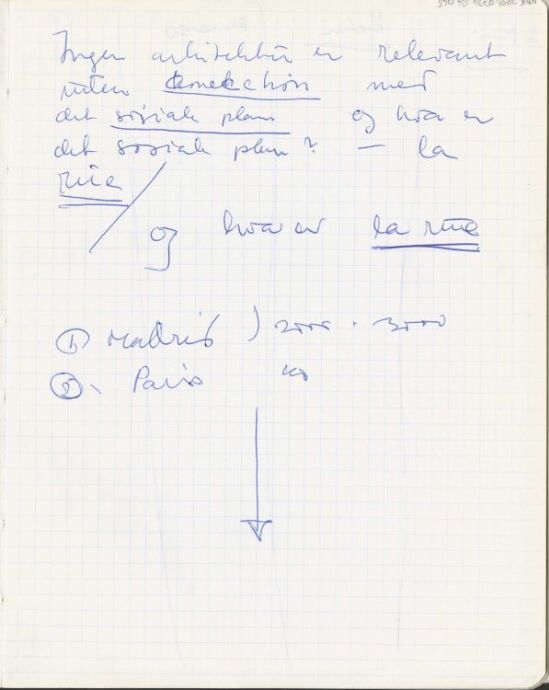 Ingen arkitektur er relevant
uten konekchon med
det sosiale plan og hva er
det sosiale plan? — la
rue
og hva er la rue
① Madrid ) 2000 . 3000
②. Paris